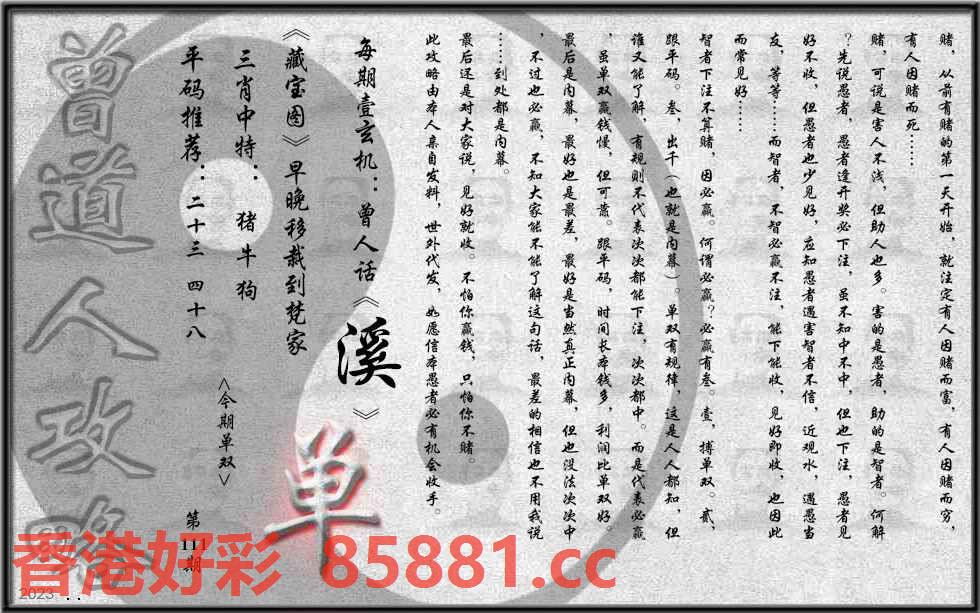 赌，从前有赌的第一天开始，就注定有人因赌而富，有人因赌而穷，
有人因赌而死……
赌，可说是害人不浅，但助人也多。害的是愚者，助的是智者。何解
？先说愚者，愚者逢开奖必下注，虽不知中不中，但也下注，愚者见
好不收，但愚者也少见好，应知愚者遇害智者不信，近观水，遇愚当
友，等等……而智者，不智必赢不注，能下能收，见好即收，也因此
而常见好……
智者下注不算赌，因必赢。何谓必赢？必赢有叁。壹，搏单双。贰，
跟平码。叁，出千（也就是内幕）。单双有规律，这是人人都知，但
谁又能了解，有规则不代表次次都能下注，次次都中。而是代表必赢
，虽单双赢钱慢，但可靠。跟平码，时间长本钱多，利润比单双好。
最后是内幕，最好也是最差，最好是当然真正内幕，但也没法次次中
，不过也必赢，不知大家能不能了解这句话，最差的相信也不用我说
……到处都是内幕。
最后还是对大家说，见好就收。不怕你赢钱，只怕你不赌。
此攻略由本人亲自发料，世外代发，如愿信本愚者必有机会收手。
每期壹玄机：曾人话《溪》
《藏宝图》早晚移栽到梵家
三肖中特：猪牛狗
平码推荐：二十三 四十八
<今期单双>
单
第
111
期
曾道人攻略
香港好彩 85881.cc
2023